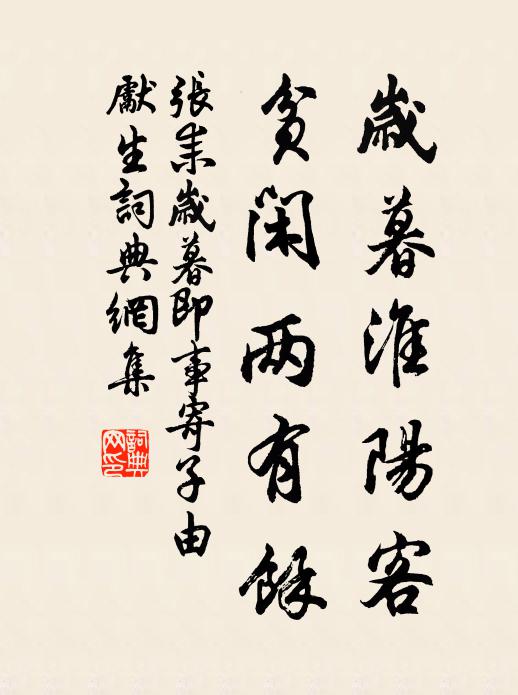 歲暮淮陽客
貧閑兩有餘
張耒歲暮即事寄子由
獻生詞典網集
詞典
网印